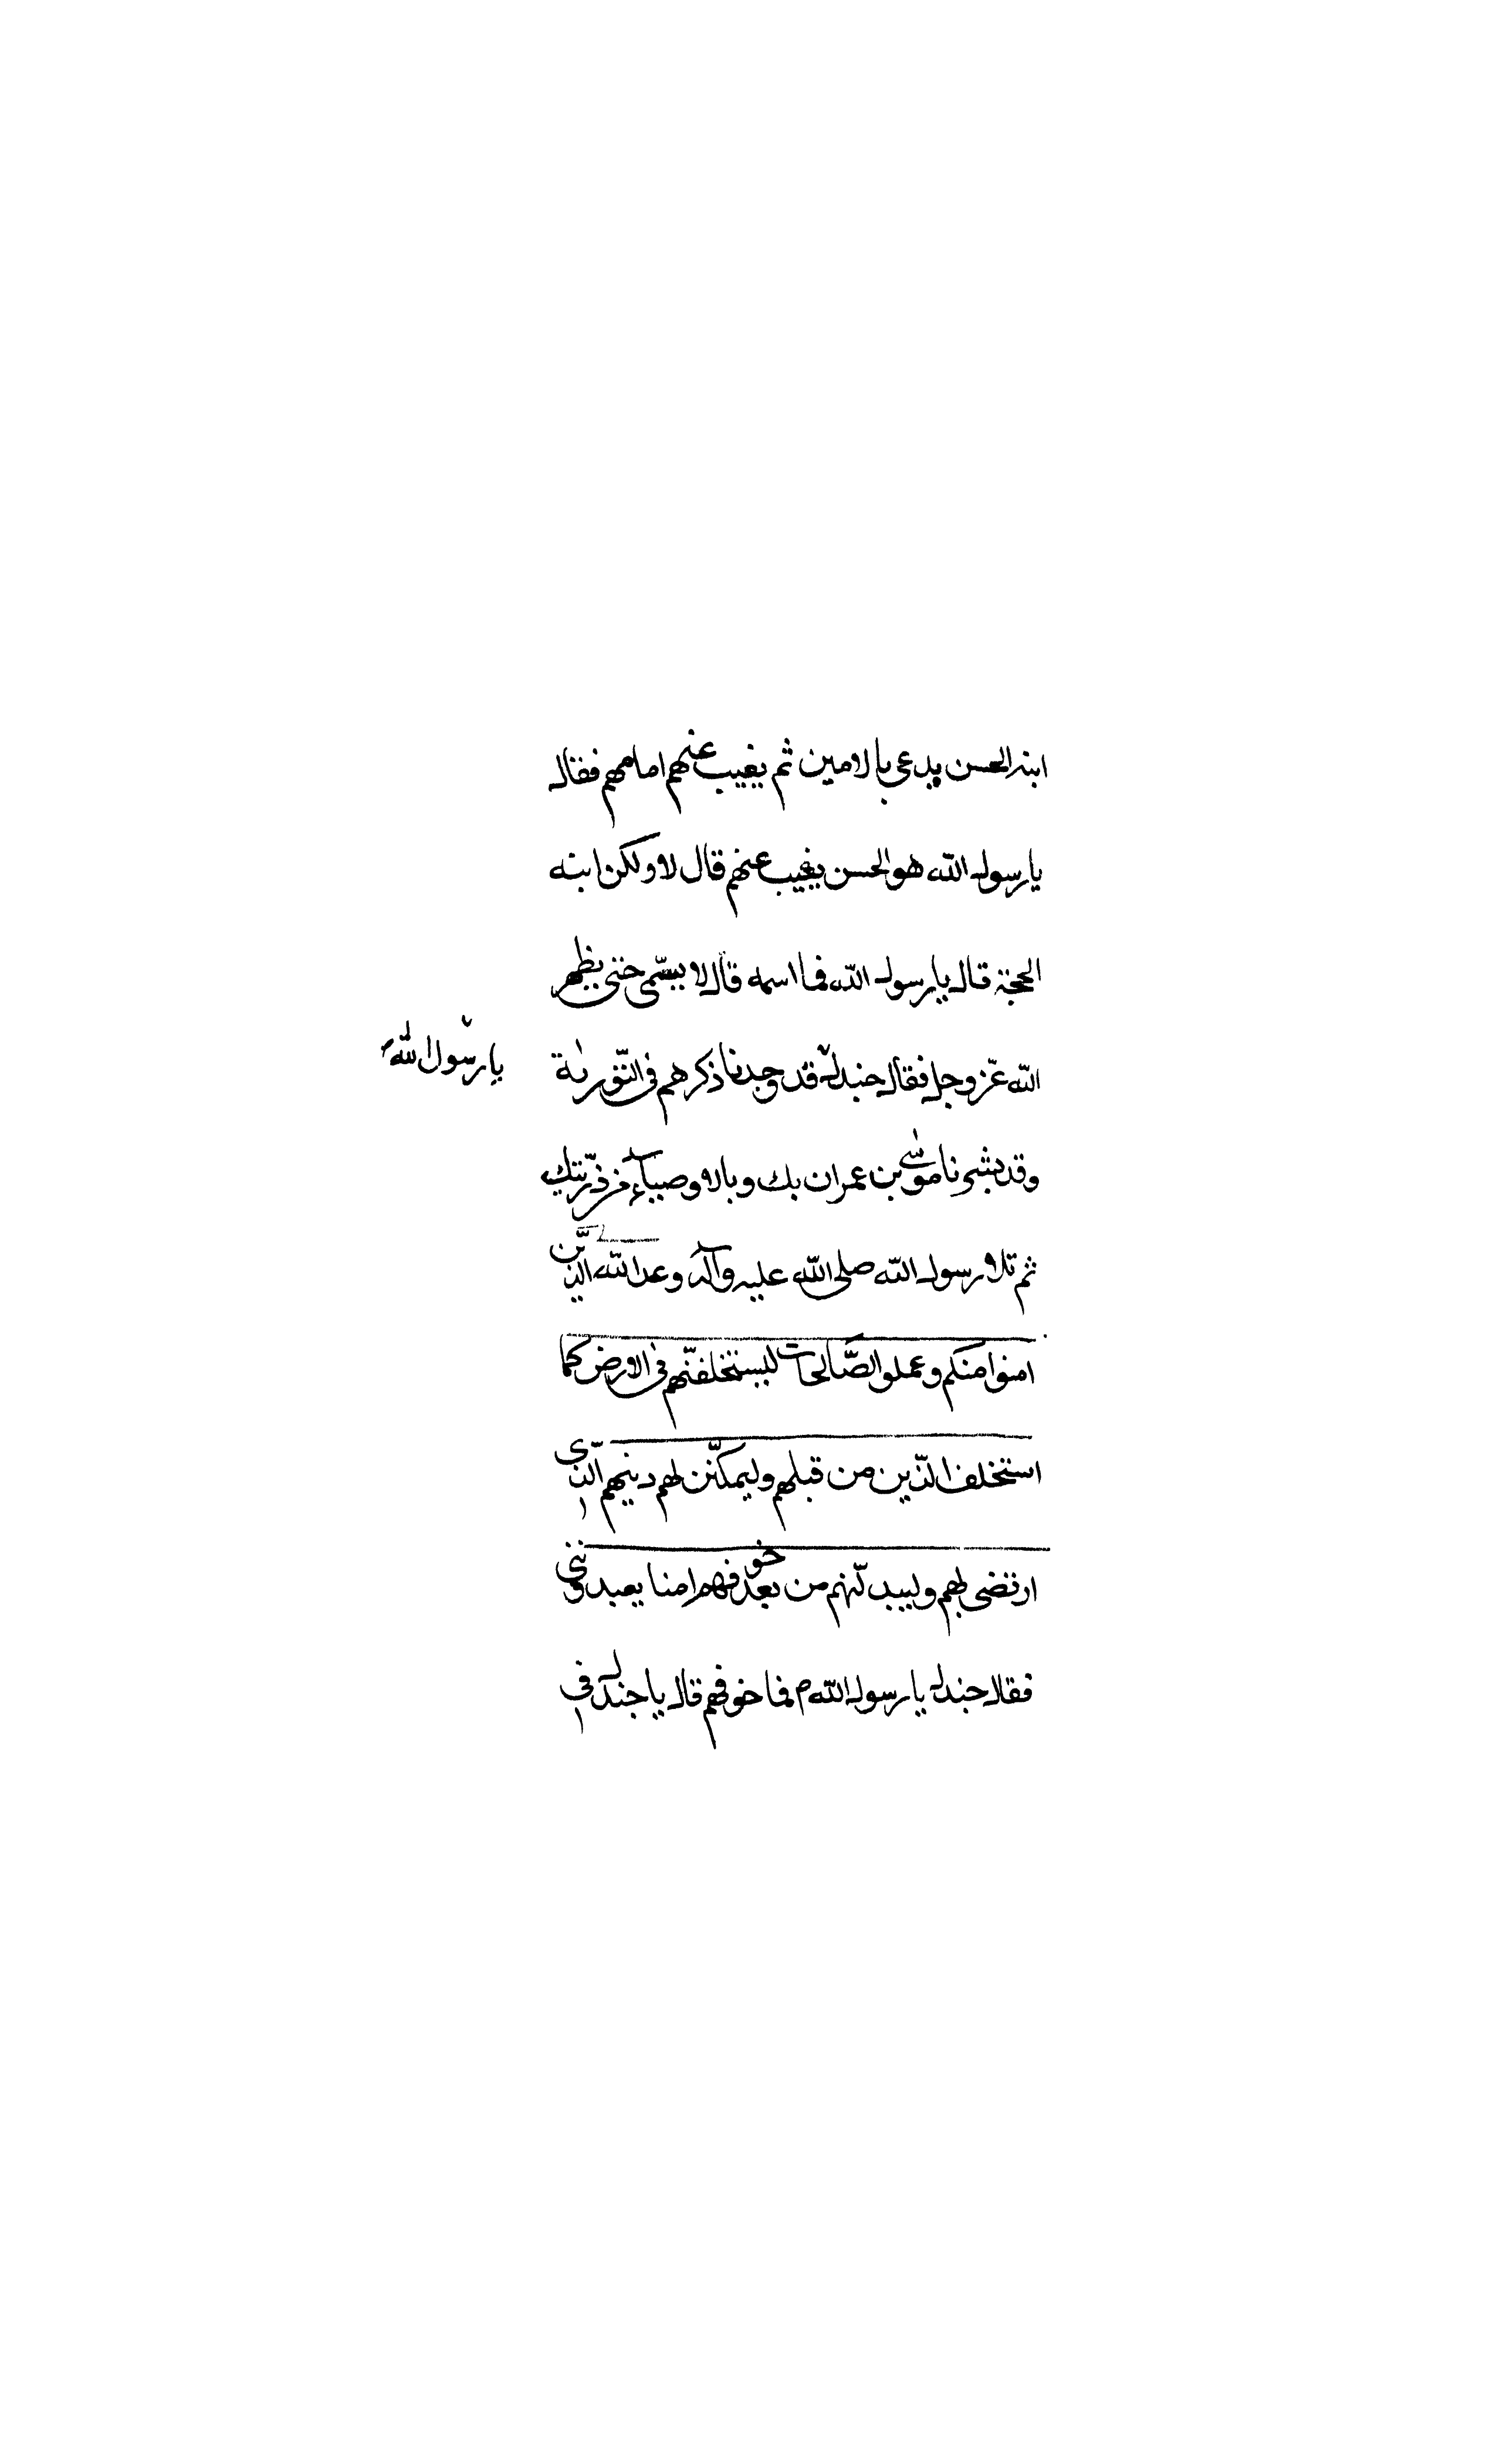 ابنه الحسن يدعى بالامين ثم يغيب عنهم امامهم فقال
يا رسول الله هو الحسن يغيب عنهم قال لا ولكن ابنه
الحجة قال يا رسول الله فما اسمه قال لا يسمّى حتى يظهر
الله عزّ وجل فقال جندل قد وجدنا ذكرهم فى التّورية
يا رسول الله
وقد بشرنا موسى بن عمران بك وبالاوصيآء من ذرّيتك
ثم تلا رسول الله صلى الله عليه وآله وعد الله الّذين
امنوا منكم وعملوا الصّالحات ليستخلفنّهم فى الارض كما
استخلف الّذين من قبلهم وليمكّنن لهم دينهم الّذى
ارتضى لهم وليبدلنّهم من بعد خوفهم امنا يعبدوننى
فقال جندل يا رسول الله ص فما خوفهم قال يا جندل فى